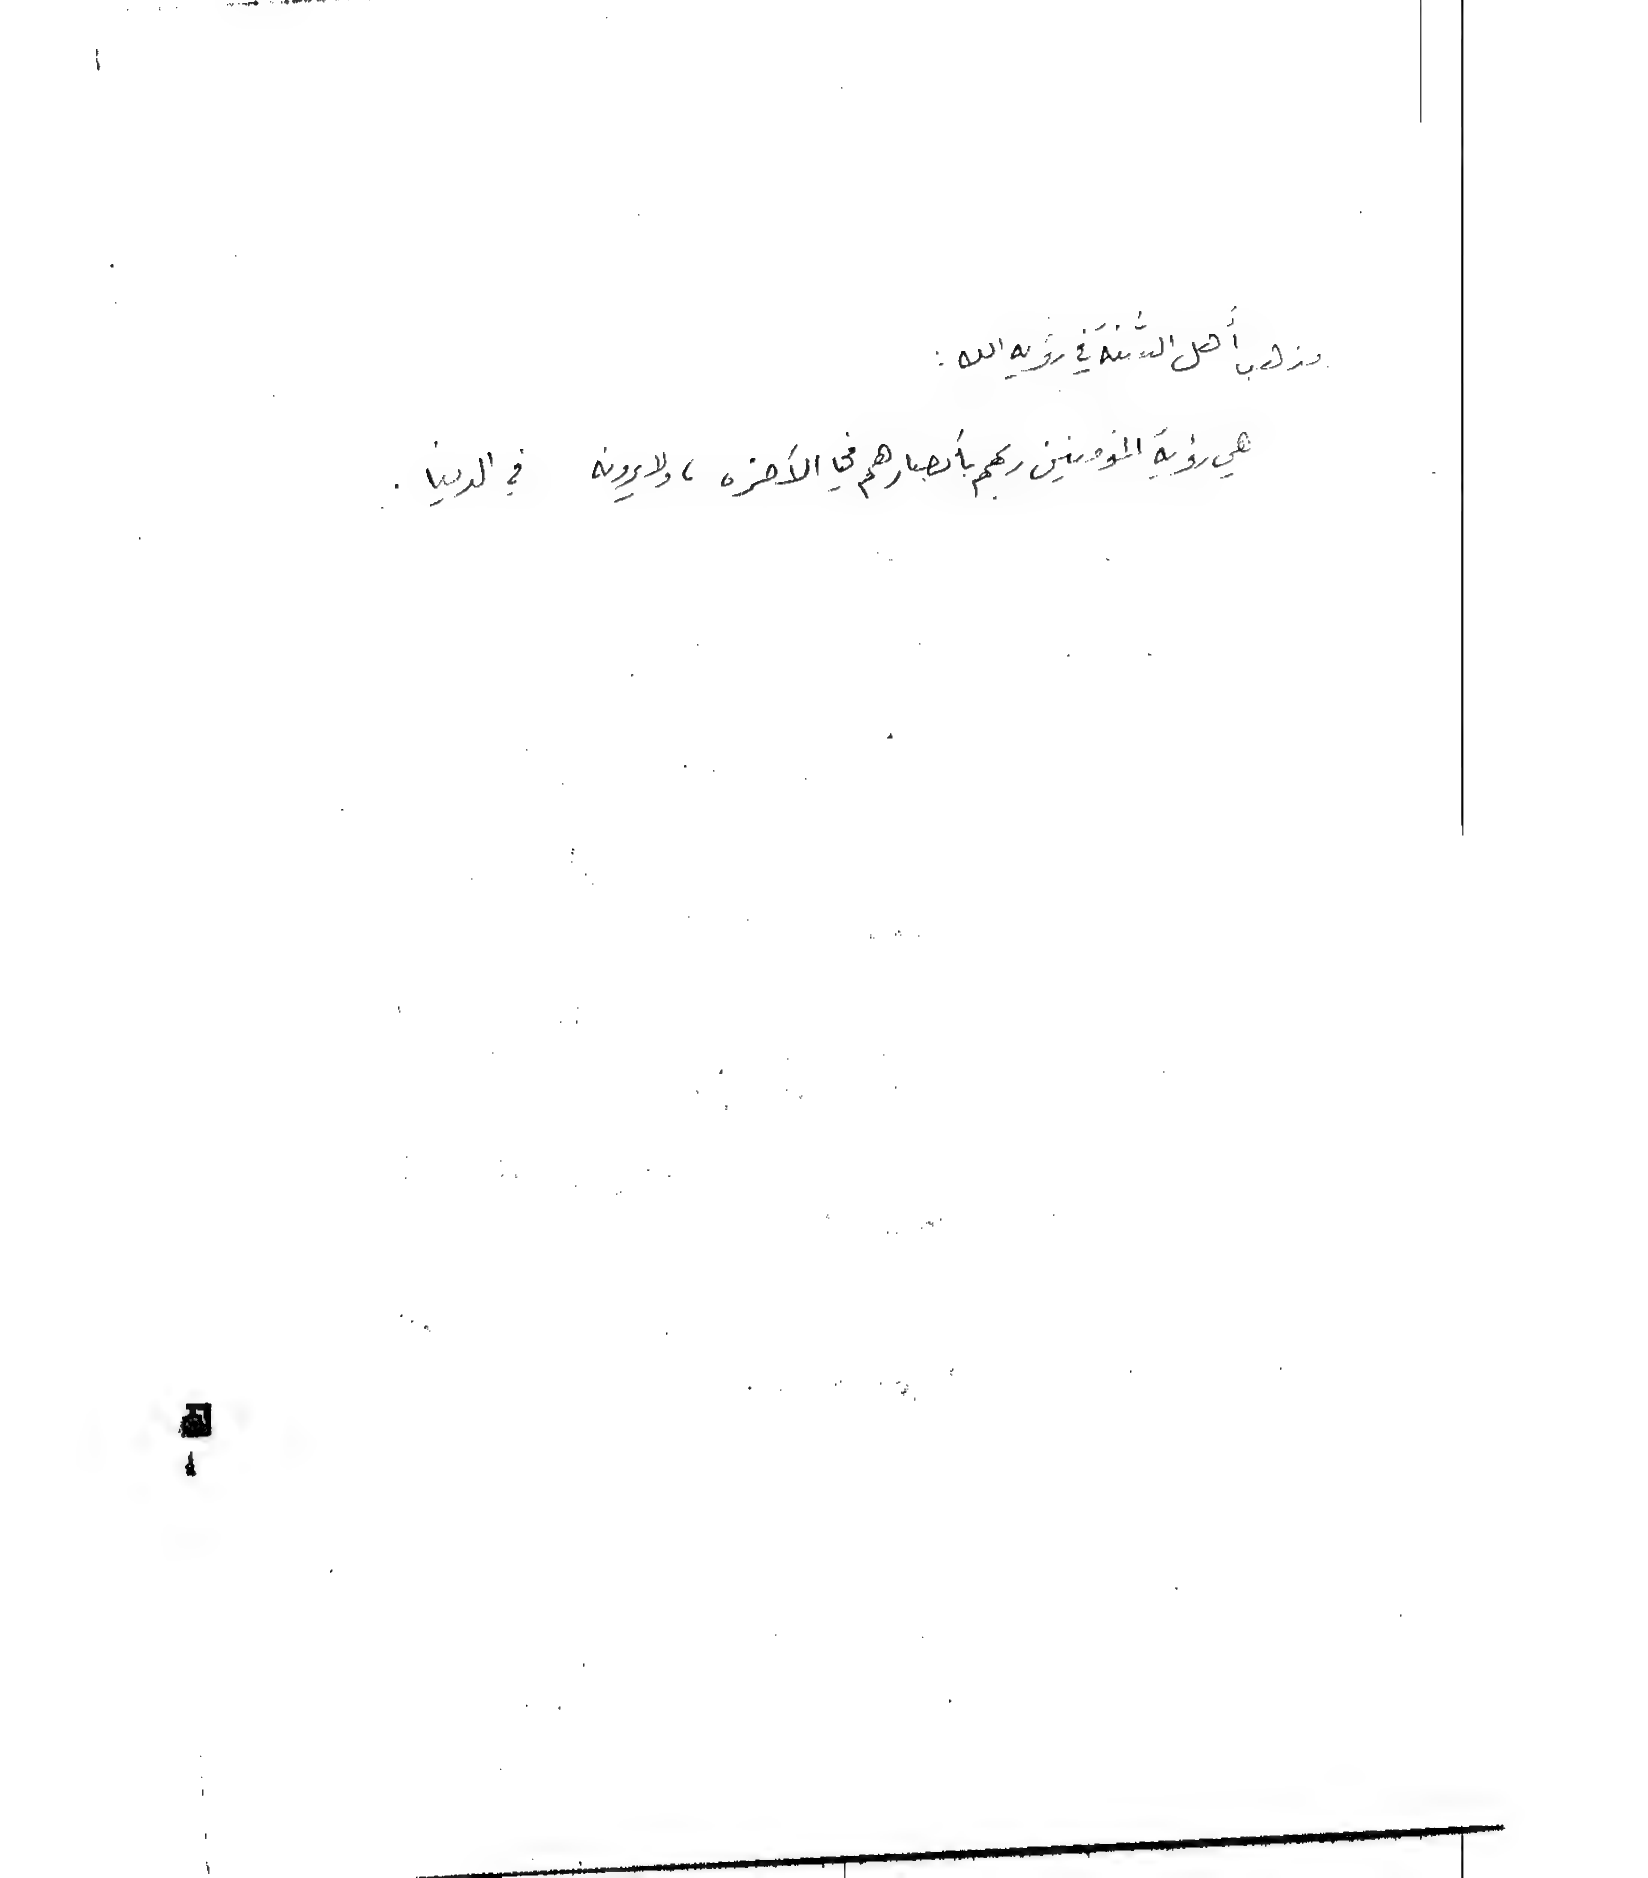 مذهب أهل السُّنة في رؤيه الله :
هي رؤية المؤمنين ربهم بأبصارهم في الآخره ، ولا يرونه في الدنيا .